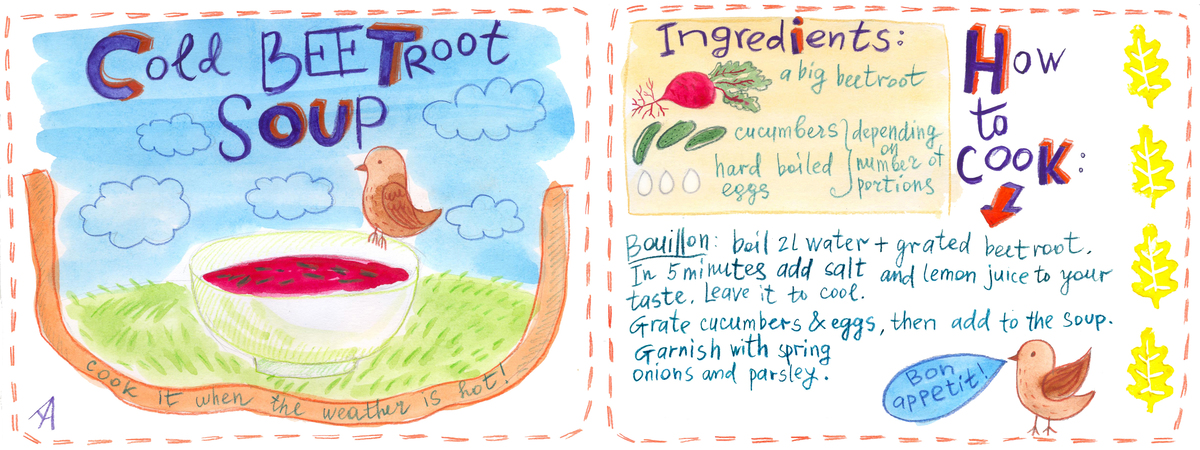 Cold BEETRooT
SOUP
cook it when the weather is hot!
Ingredients:
a big beetroot
cucumbers } depending
on
hard boiled } number of
eggs portions
How
to
COOK:
Bouillon: boil 2L water + grated beetroot.
In 5 minutes add salt and lemon juice to your
taste. Leave it to cool.
Grate cucumbers & eggs, then add to the soup.
Garnish with spring
onions and parsley.
Bon
appetit!